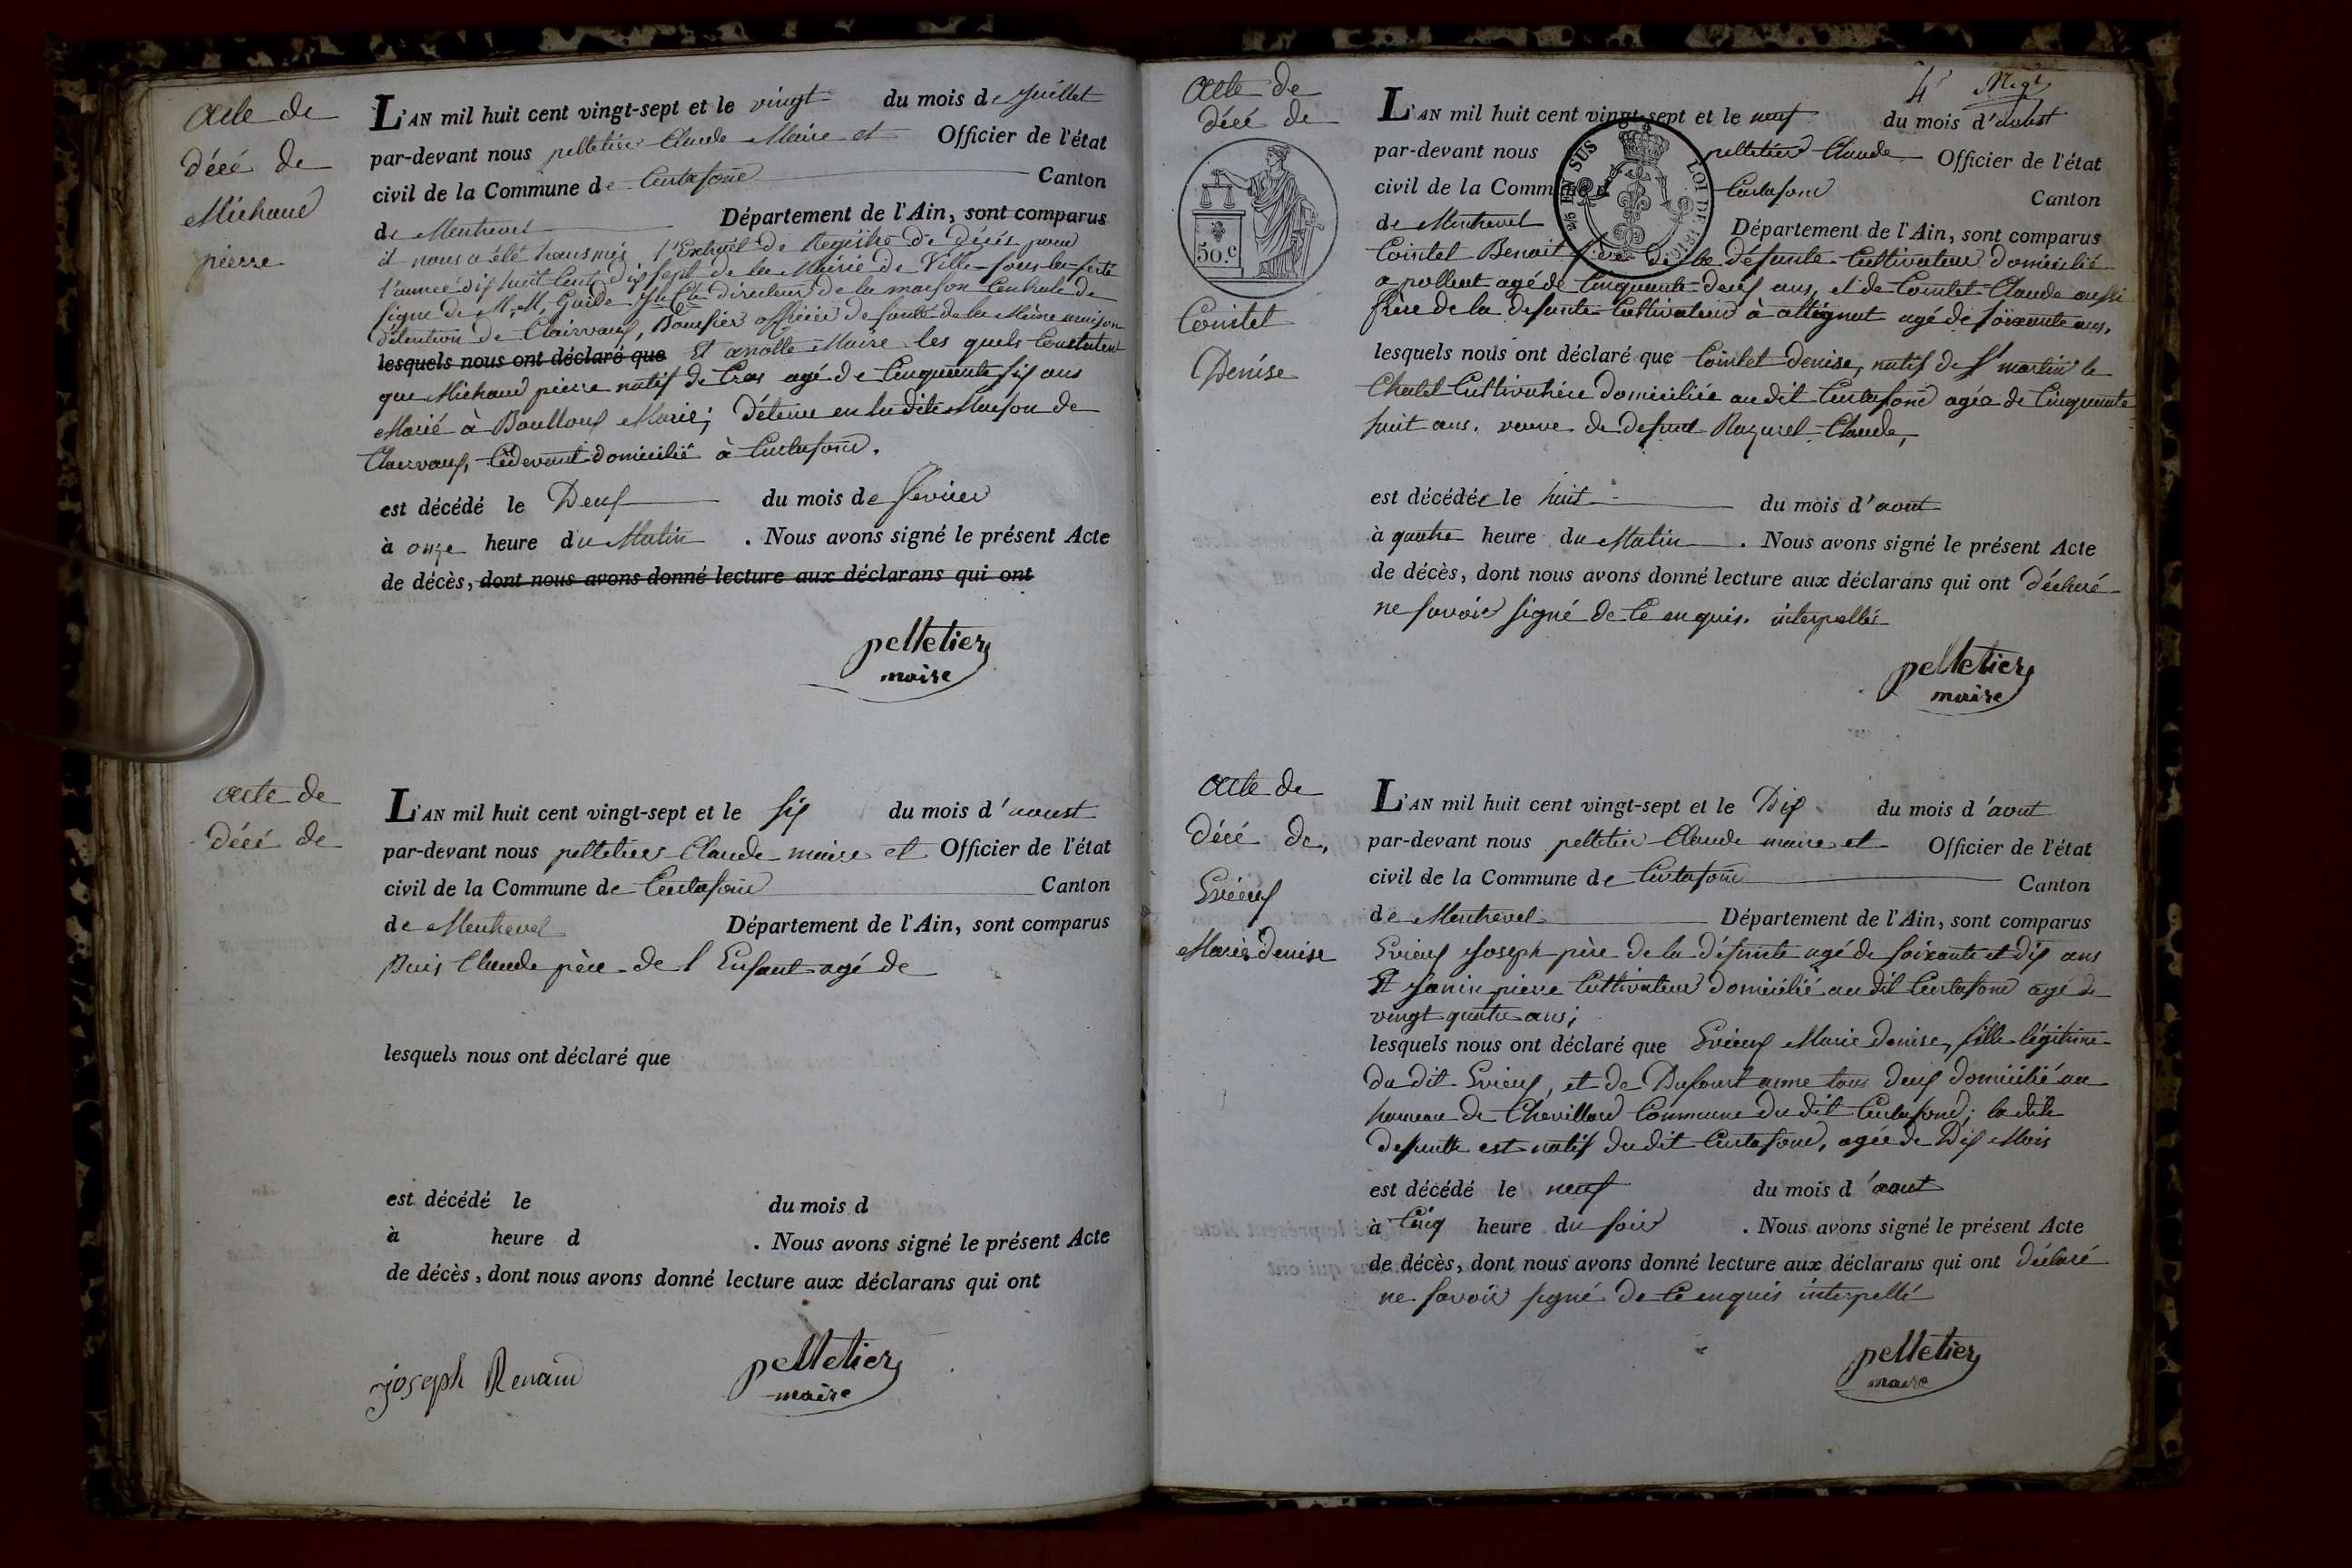 acte de
décé de
Michaud
pierre
L'AN mil huit cent vingt-sept et le vingt du mois de Juillet
par-devant nous pelletier Claude Maire et Officier de l'état
civil de la Commune de Curtafond Canton
de Montrevel Département de l'Ain, sont comparus
il nous a été transmis l'Extrait de Registre de décés pour
l'année dix huit Cent dix sept de la Mairie de Ville-sous-la-ferté
signe de M.M. Guide directeur de la maison Centrale de
détention de Clairvaux, officier de santé de la Même maison
lesquels nous ont déclaré que Et Maire les quels Constatent
que Michaud pierre natif de Cras agé de Cinquante six ans
Marié à Marie; Détenu en la dite Maison de
Clairvaux, Cidevant domicilié à Curtafond.
est décédé le Deux du mois de fevrier
à onze heure du Matin . Nous avons signé le présent Acte
de décès, dont nous avons donné lecture aux déclarans qui ont
pelletier
maire
acte de
décé de
L'AN mil huit cent vingt-sept et le six du mois d'aoust
par-devant nous pelletier Claude maire et Officier de l'état
civil de la Commune de Curtafond Canton
de Montrevel Département de l'Ain, sont comparus
Claude père de l'Enfant agé de
lesquels nous ont déclaré que
est décédé le du mois d
à heure d . Nous avons signé le présent Acte
de décès, dont nous avons donné lecture aux déclarans qui ont
joseph Renaud
pelletier
maire
4
acte de
décé de
50.c
Cointet
Denise
L'AN mil huit cent vingt-sept et le neuf du mois d'aoust
par-devant nous pelletier Claude Officier de l'état
civil de la Commune Curtafond Canton
de Montrevel Département de l'Ain, sont comparus
EN SUS LOI DE
Cointet Benoit frère de la défunte Cultivateur domicilié
a polliat agé de Cinquante-deux ans, et de Cointet Claude aussi
frère de la defunte Cultivateur à attignat agé de soixante ans,
lesquels nous ont déclaré que Cointet denise, natif de St martin le
Chatel Cultivatrice domiciliée au dit Curtafond agée de Cinquante
huit ans. veuve de defunt Razurel Claude,
est décédée le huit du mois d'aout
à quatre heure du Matin . Nous avons signé le présent Acte
de décès, dont nous avons donné lecture aux déclarans qui ont déclaré
ne savoir signé de Ce enquis. interpellés
pelletier
maire
acte de
décé de,
Evieux
Marie denise
L'AN mil huit cent vingt-sept et le Dix du mois d'aout
par-devant nous pelletier Claude maire et Officier de l'état
civil de la Commune de Curtafond Canton
de Montrevel Département de l'Ain, sont comparus
Evieux Joseph père de la défunte agé de soixante et dix ans
Et Janin pierre Cultivateur domicilié au dit Curtafond agé de
vingt quatre ans;
lesquels nous ont déclaré que Evieux Marie denise, fille légitime
du dit Evieux, et de Dufour anne tous deux domicilié au
hameau de Chevillard Commune du dit Curtafond; la dite
defunte est natif du dit Curtafond, agée de Dix Mois
est décédé le neuf du mois d'aout
à Cinq heure du soir . Nous avons signé le présent Acte
de décès, dont nous avons donné lecture aux déclarans qui ont déclaré
ne savoir signé de Ce enquis interpellé
pelletier
maire